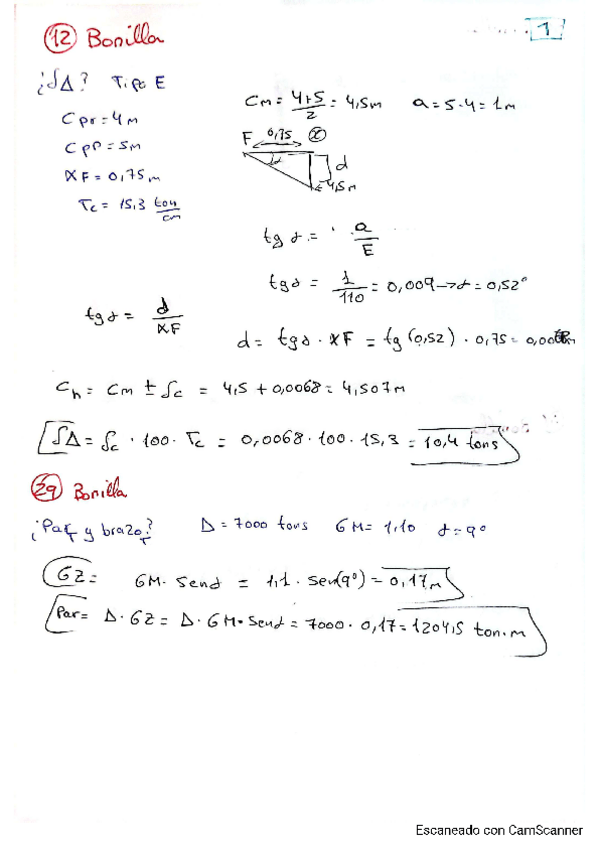 1
12 Bonilla
¿δΔ? Tipo E
Cpr = 4m
Cpp = 5m
XF = 0,75m
Tc = 15,3 ton/cm
Cm = 4+5/2 = 4,5m a = 5-4 = 1m
F 0,75 X
α d
4,5m
tg α = a/E
tg α = 1/110 = 0,009 → α = 0,52°
tg α = d/XF
d = tg α · XF = tg (0,52) · 0,75 =
Ch = Cm ± δc = 4,5 + 0,0068 = 4,507m
δΔ = δc · 100 · Tc = 0,0068 · 100 · 15,3 = 10,4 tons
29 Bonilla
¿Par y brazo? Δ = 7000 tons GM = 1,10 α = 9°
GZ = GM · sen α = 1,1 · sen(9°) = 0,17m
Par = Δ · GZ = Δ · GM · sen α = 7000 · 0,17 = 1204,5 ton·m
Escaneado con CamScanner